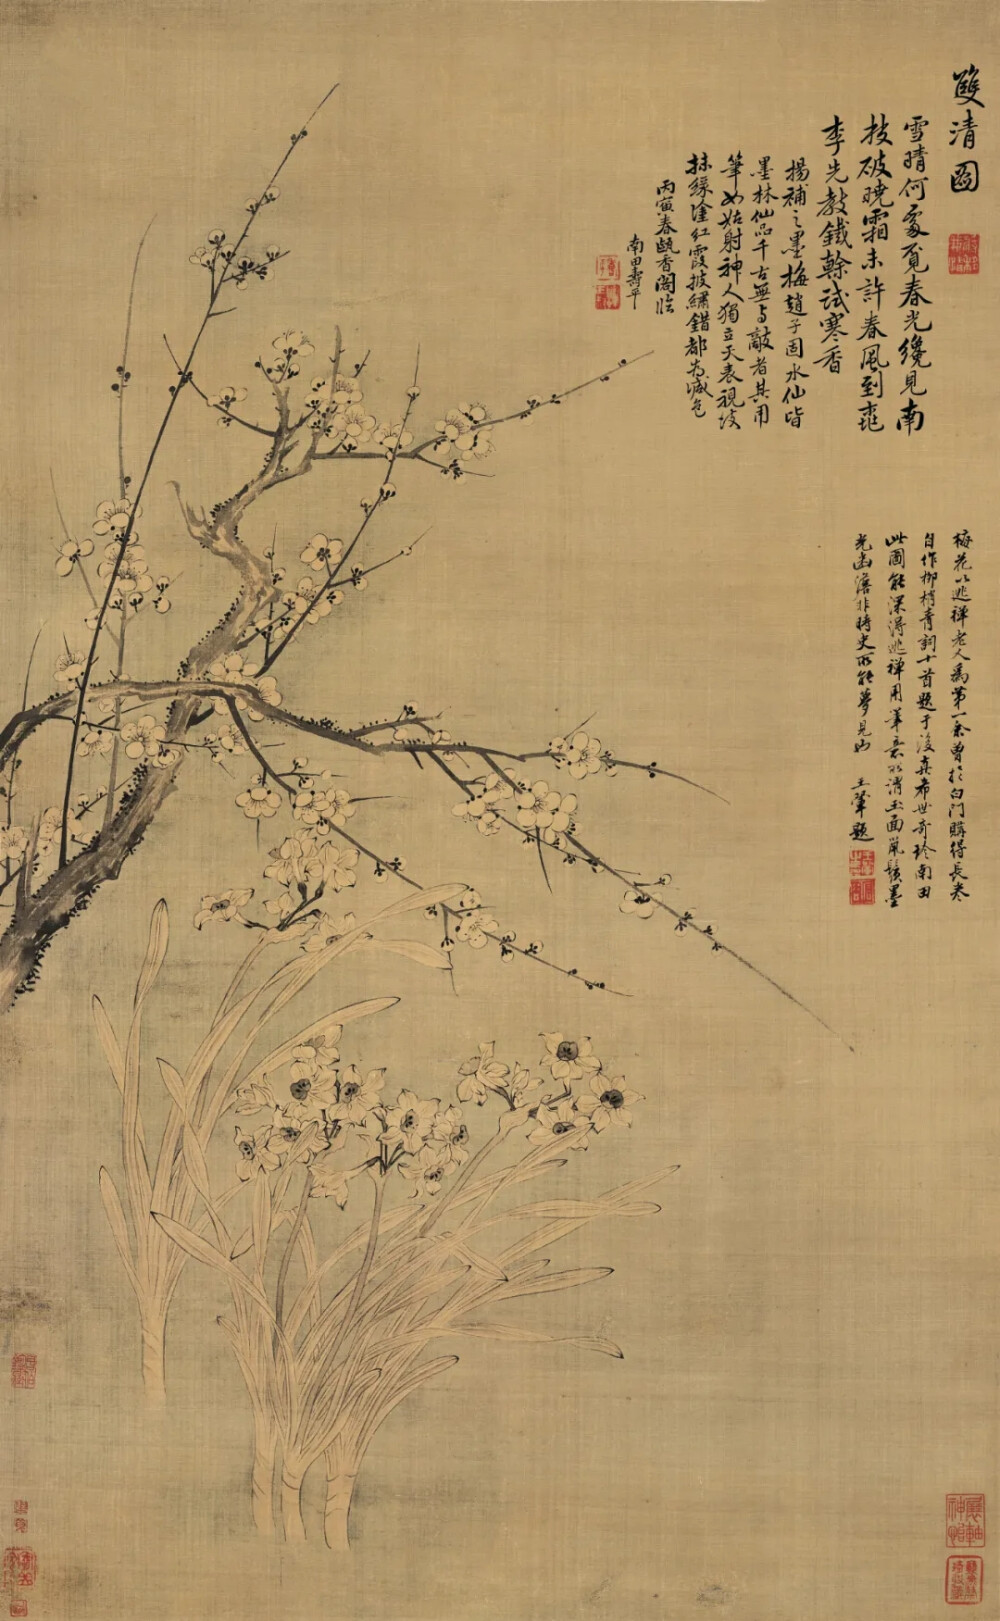 雙清圖
雪晴何處覓春光纔見南
枝破曉霜未許春風到桃
李先教鐵幹試寒香
揚補之墨梅趙子固水仙皆
墨林仙品千古無與敵者其用
筆如姑射神人獨立天表視塗
抹綠塗紅霞披繡錯都為減色
丙寅春甌香閣臨
南田壽平
梅花以逃禪老人為第一余曾於白門購得長卷
自作柳梢青詞十首題于後真希世奇珍南田
此圖能深得逃禪用筆意冰清玉面鼠鬚墨
光幽澹非時史所能夢見也
王翬題